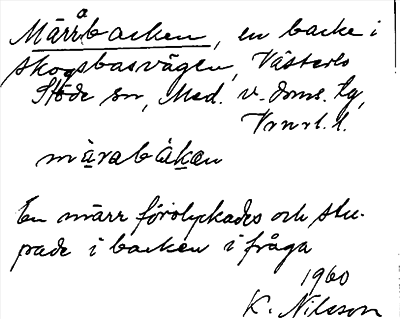 Märråbacken, en backe i
skogsbasvägen, Västerlo
Stöde sn, Med. v. doms. tg,
Vrnrl. l.
märabàkan
En märr förolyckades och stu-
pade i backen i fråga
1960
K. Nilsson